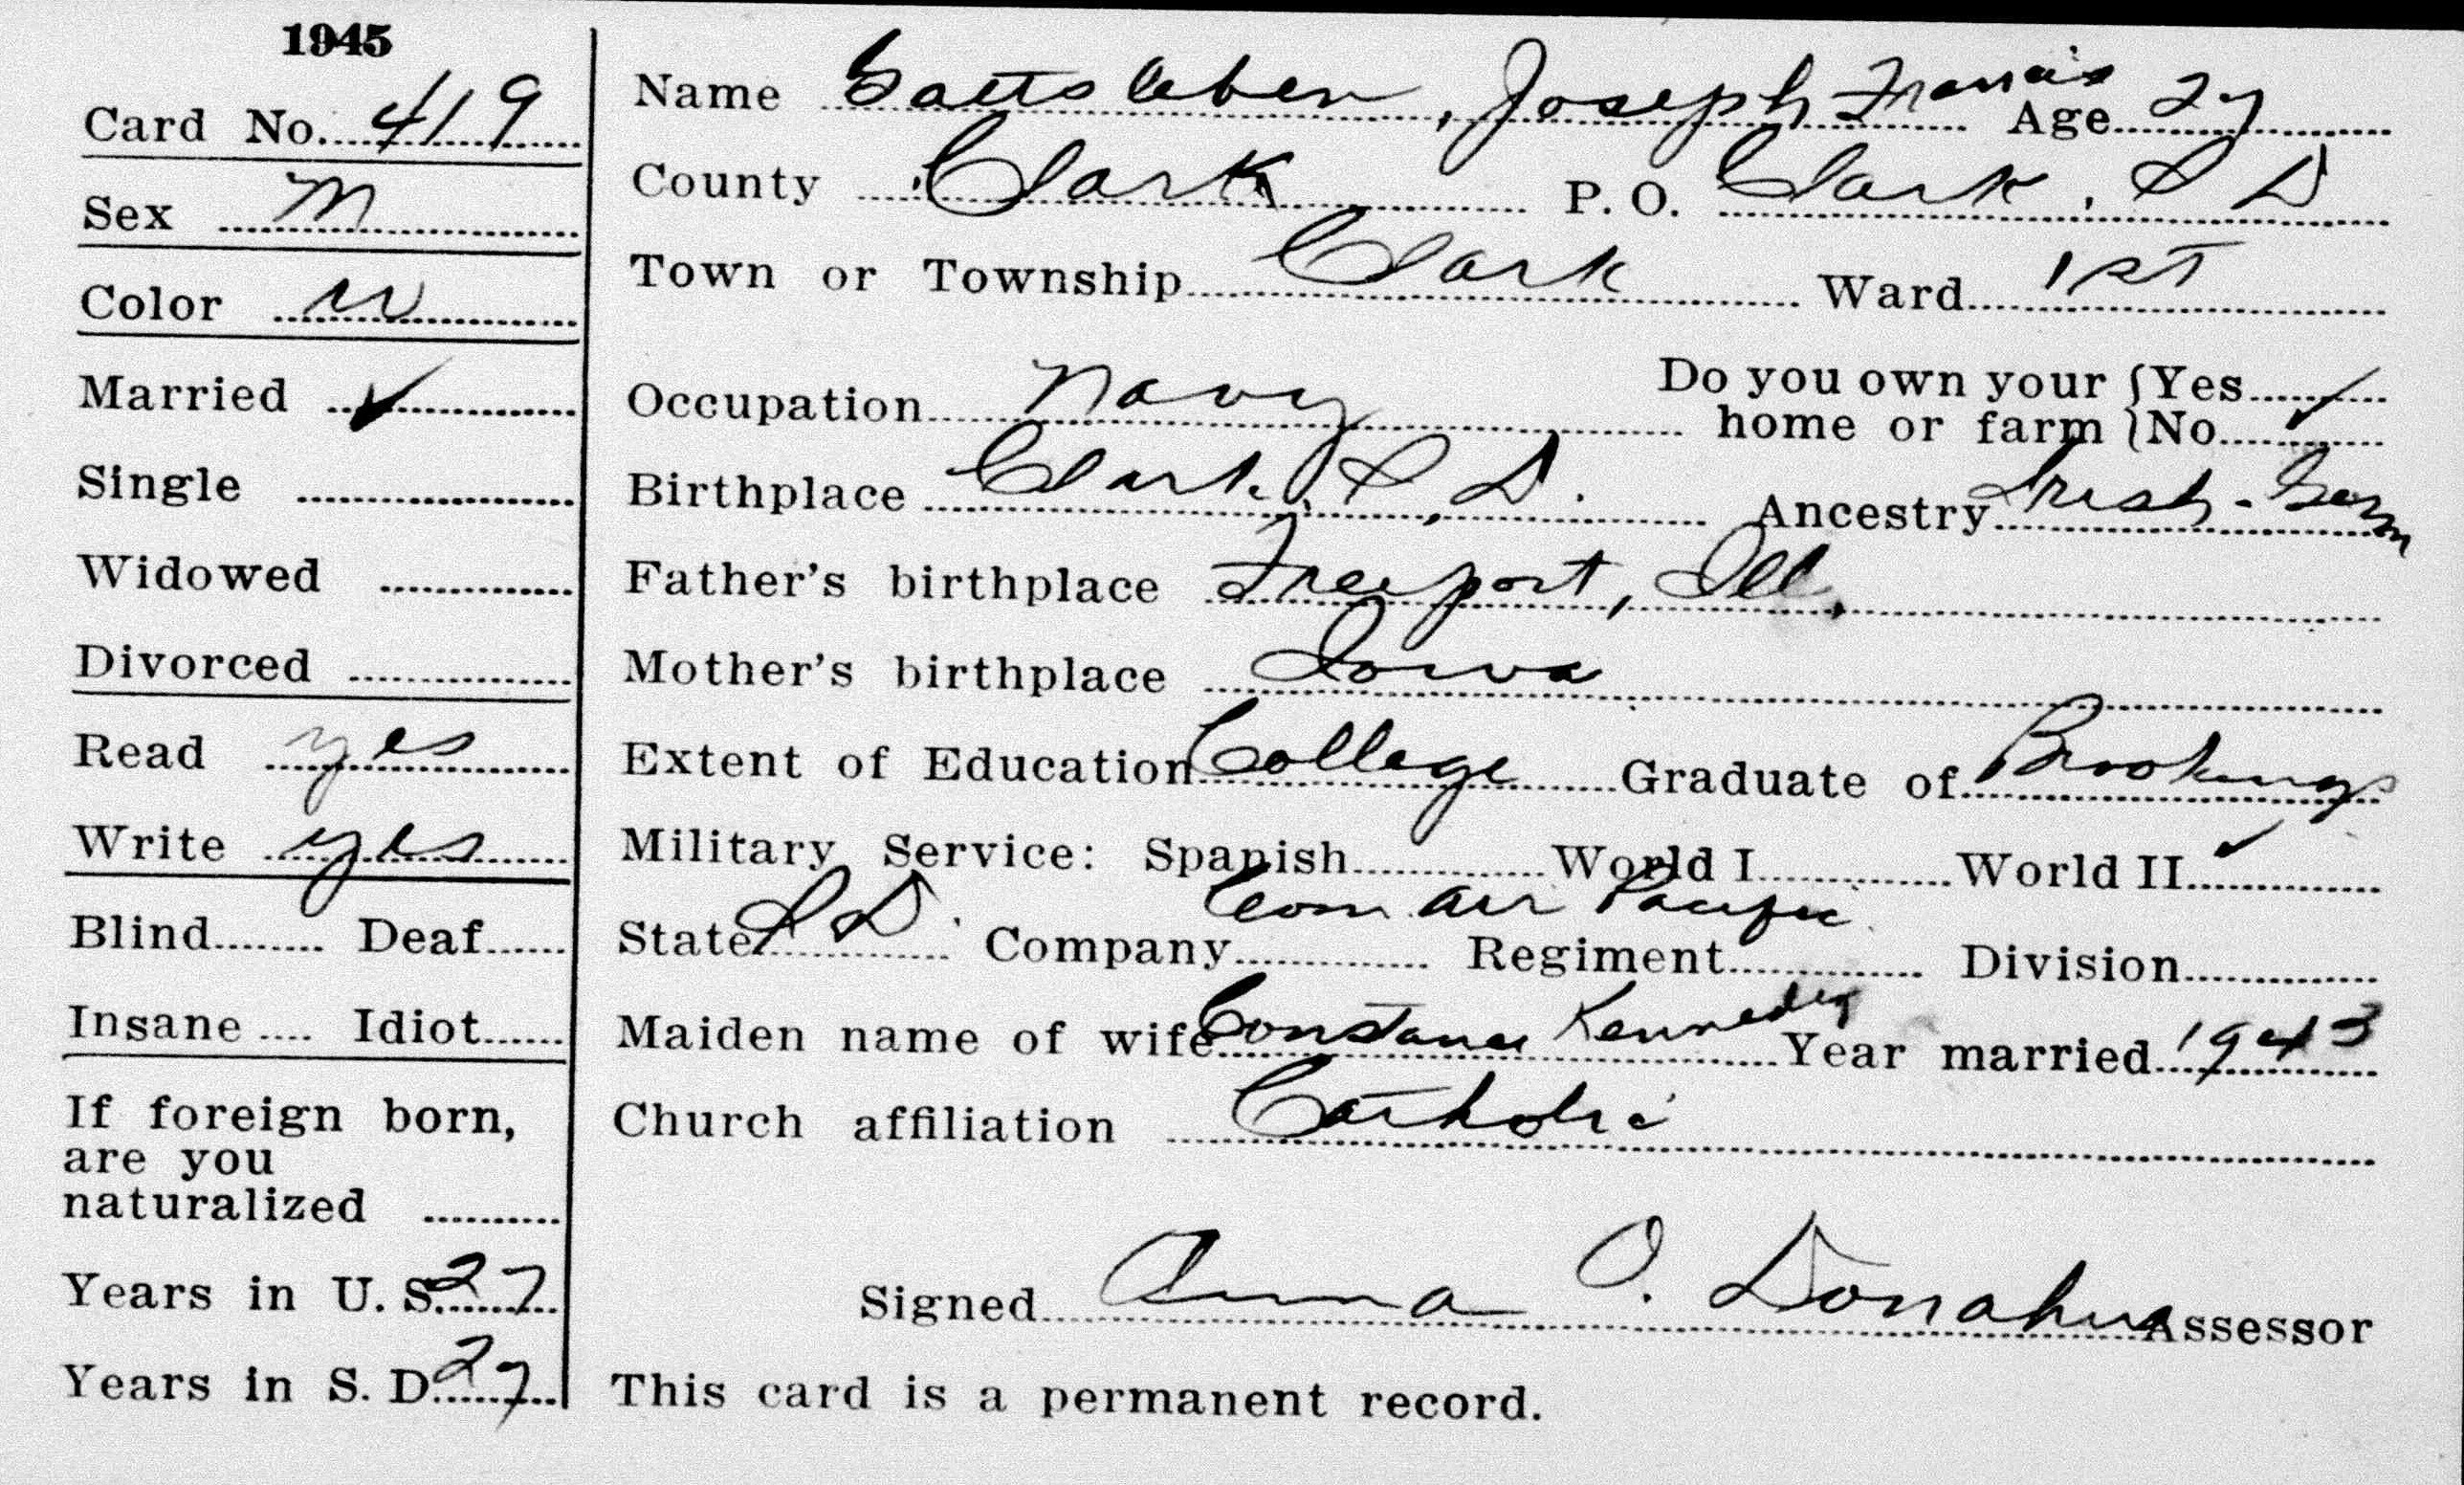 1945
Card No. 419
Sex M
Color W
Married ✓
Single
Widowed
Divorced
Read yes
Write yes
Blind Deaf
Insane Idiot
If foreign born,
are you
naturalized
Years in U. S. 27
Years in S. D. 27
Name , Joseph Francis Age 27
County Clark P. O. Clark, S D
Town or Township Clark Ward 1st
Occupation Navy Do you own your home or farm { Yes { No ✓
Birthplace Clark, S. D. Ancestry Irish-Germ
Father's birthplace Freeport, Ill.
Mother's birthplace Iowa
Extent of Education College Graduate of Brookings
Military Service: Spanish World I World II ✓
Com Air Pacific
State S D. Company Regiment Division
Maiden name of wife Constance Kennedy Year married 1943
Church affiliation Catholic
Signed Anna O. Donahue Assessor
This card is a permanent record.